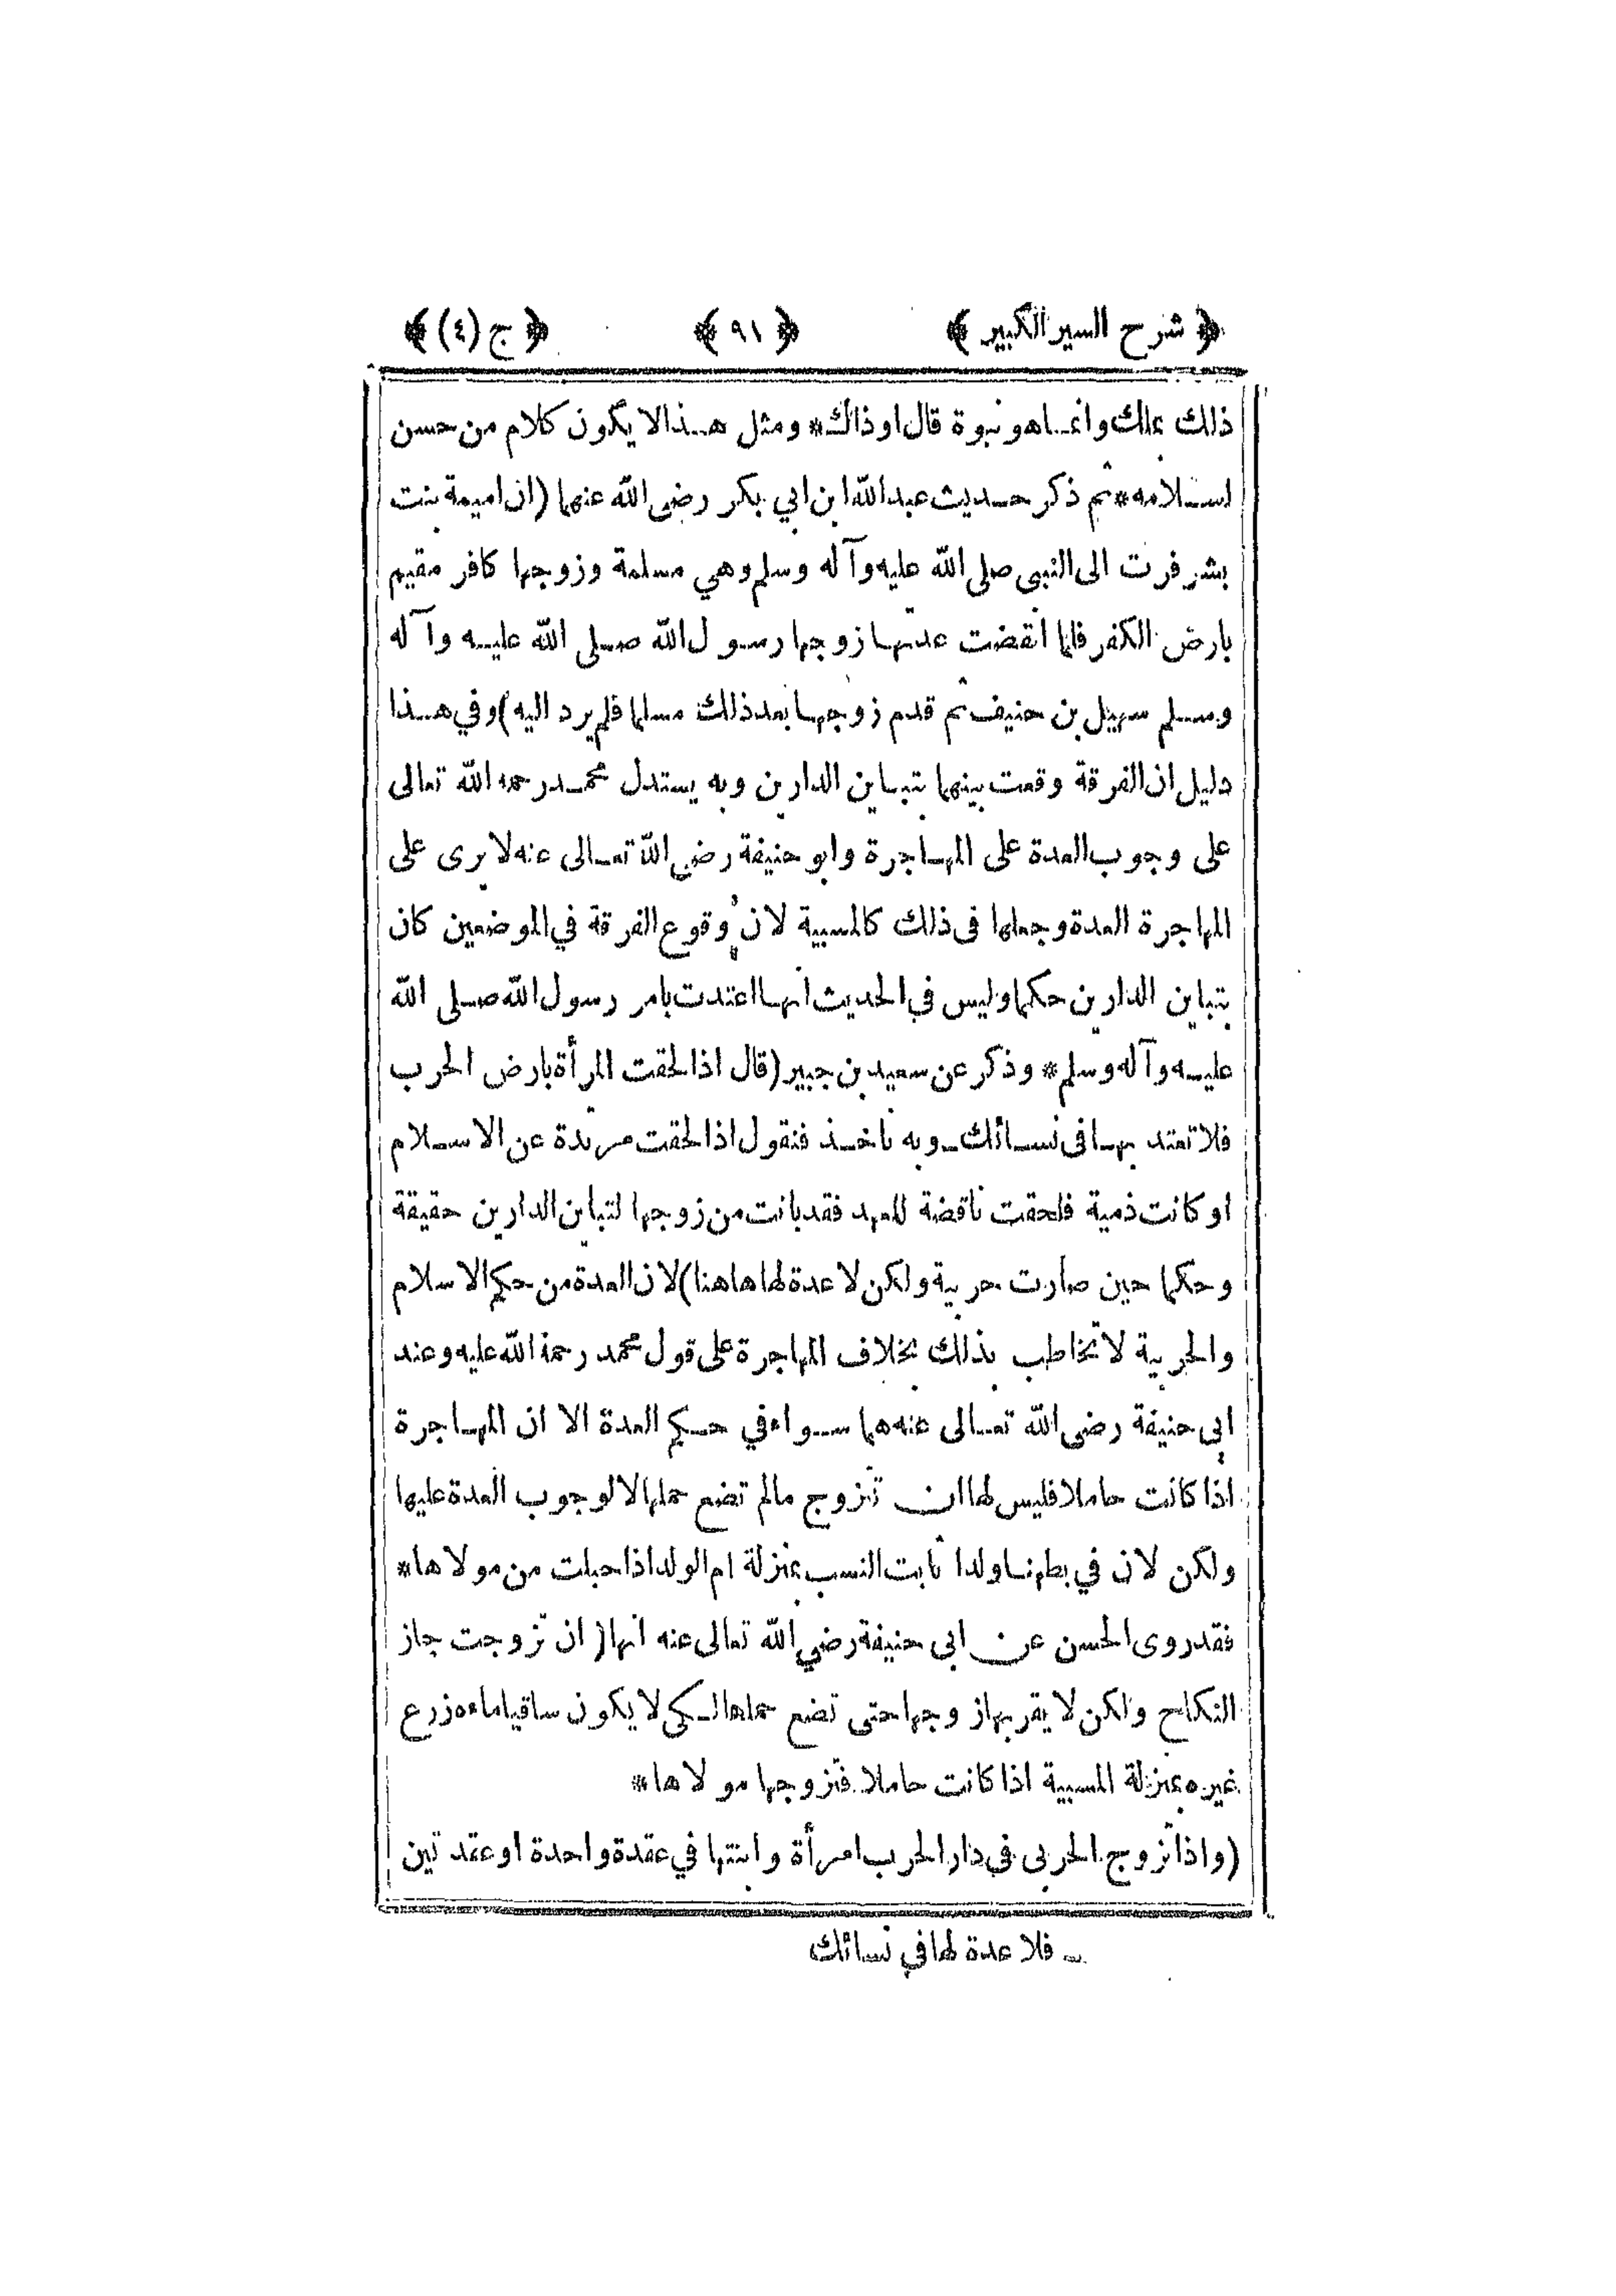 ﴿ شرح السير الكبير ﴾ ﴿ ٩١ ﴾ ﴿ ج (٤) ﴾
ذلك بملك وانما هو نبوة قال او ذاك* ومثل هذا لا يكون كلام من حسن
اسلامه* ثم ذكر حديث عبد الله ابن ابي بكر رضى الله عنهما (ان اميمة بنت
بشر فرت الى النبى صلى الله عليه وآله وسلم وهي مسلمة وزوجها كافر مقيم
بارض الكفر فلما انقضت عدتها زوجها رسول الله صلى الله عليه وآله
وسلم سهيل بن حنيف ثم قدم زوجها بعد ذلك مسلما فلم يرد اليه) وفي هذا
دليل ان الفرقة وقعت بينهما بتباين الدارين وبه يستدل محمد رحمه الله تعالى
على وجوب العدة على المهاجرة وابو حنيفة رضي الله تعالى عنه لا يرى على
المهاجرة العدة وجعلها فى ذلك كالمسبية لان وقوع الفرقة في الموضعين كان
بتباين الدارين حكما وليس في الحديث انها اعتدت بامر رسول الله صلى الله
عليه وآله وسلم* وذكر عن سعيد بن جبير (قال اذا لحقت المرأة بارض الحرب
فلا تعتد بها فى نسائك ـ وبه ناخذ فنقول اذا لحقت مرتدة عن الاسلام
او كانت ذمية فلحقت ناقضة للعهد فقد بانت من زوجها لتباين الدارين حقيقة
وحكما حين صارت حربية ولكن لا عدة لها هاهنا) لان العدة من حكم الاسلام
والحربية لا تخاطب بذلك بخلاف المهاجرة على قول محمد رحمة الله عليه وعند
ابى حنيفة رضى الله تعالى عنه هما سواء في حكم العدة الا ان المهاجرة
اذا كانت حاملا فليس لها ان تتزوج مالم تضع حملها لا لوجوب العدة عليها
ولكن لان في بطنها ولدا ثابت النسب بمنزلة ام الولد اذا حبلت من مولاها*
فقد روى الحسن عن ابى حنيفة رضي الله تعالى عنه انها (ان تزوجت جاز
النكاح ولكن لا يقربها زوجها حتى تضع حملها لكى لا يكون ساقيا ماءه زرع
غيره بمنزلة المسبية اذا كانت حاملا فتزوجها مولاها*
(واذا تزوج الحربى في دار الحرب امرأة وابنتها في عقدة واحدة او عقدتين
ـ فلا عدة لها في نسائك